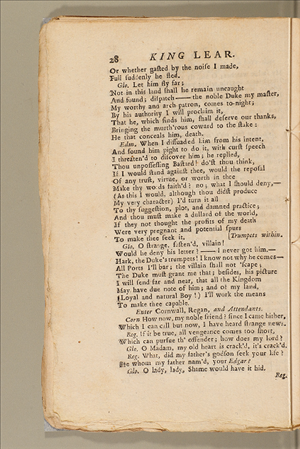 28 KING LEAR.
Or whether gasted by the noise I made,
Full suddenly he fled.
Glo. Let him fly far;
Not in this land shall he remain uncaught
And found; dispatch——the noble Duke my master,
My worthy and arch patron, comes to-night;
By his authority I will proclaim it,
That he, which finds him, shall deserve our thanks,
Bringing the murth'rous coward to the stake;
He that conceals him, death.
Edm. When I dissuaded him from his intent,
And found him pight to do it, with curst speech
I threaten'd to discover him; he replied,
Thou unpossessing Bastard! do'st thou think,
If I would stand against thee, would the reposal
Of any trust, virtue, or worth in thee
Make thy words faith'd? no; what I should deny,—
(As this I would, although thou didst produce
My very character) I'd turn it all
To thy suggestion, plot, and damned practice;
And thou must make a dullard of the world,
If they not thought the profits of my death
Were very pregnant and potential spurs
To make thee seek it. [Trumpets within.
Glo. O strange, fasten'd, villain!
Would he deny his letter?——I never got him.—
Hark, the Duke's trumpets! I know not why he comes—
All Ports I'll bar; the villain shall not 'scape;
The Duke must grant me that; besides, his picture
I will send far and near, that all the Kingdom
May have due note of him; and of my land,
(Loyal and natural Boy!) I'll work the means
To make thee capable.
Enter Cornwall, Regan, and Attendants.
Corn How now, my noble friend? since I came hither,
Which I can call but now, I have heard strange news.
Reg. If it be true, all vengeance comes too short,
Which can pursue th' offender; how does my lord?
Glo. O Madam, my old heart is crack'd, it's crack'd.
Reg. What, did my father's godson seek your life?
He whom my father nam'd, your Edgar?
Glo. O lady, lady, Shame would have it hid.
Reg.